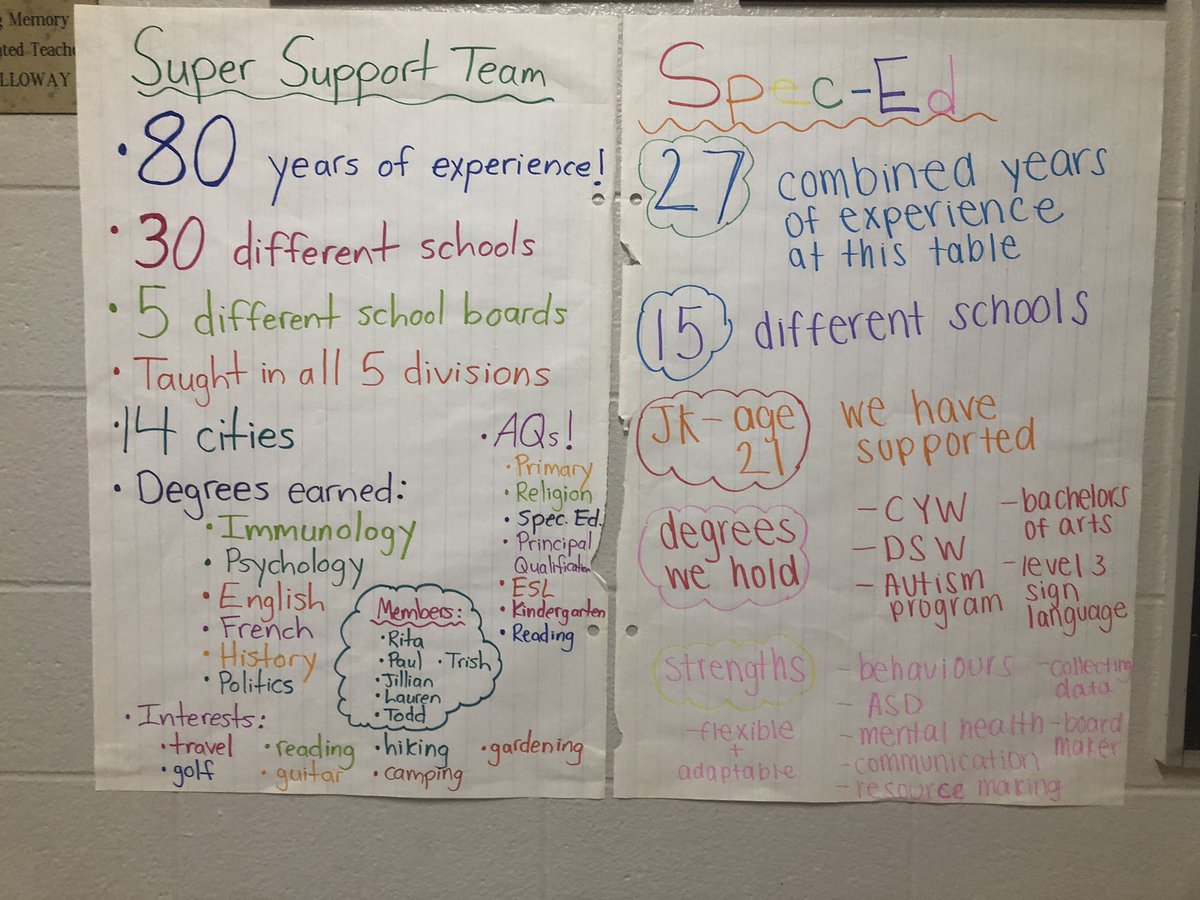 g Memory
ated Teache
LLOWAY
Super Support Team
• 80 years of experience!
• 30 different schools
• 5 different school boards
• Taught in all 5 divisions
• 14 cities
• Degrees earned:
• Immunology
• Psychology
• English
• French
• History
• Politics
• AQs!
• Primary
• Religion
• Spec. Ed.
• Principal
Qualification
• ESL
• Kindergarten
• Reading
Members:
• Rita
• Paul • Trish
• Jillian
• Lauren
• Todd
• Interests:
• travel • reading • hiking • gardening
• golf • guitar • camping
Spec-Ed
27 combined years
of experience
at this table
15 different schools
JK - age
21
we have
supported
degrees
we hold
- CYW
- DSW
- Autism
program
- bachelors
of arts
- level 3
sign
language
strengths
- flexible
+
adaptable
- behaviours
- ASD
- mental health
- communication
- resource making
- collecting
data
- board
maker